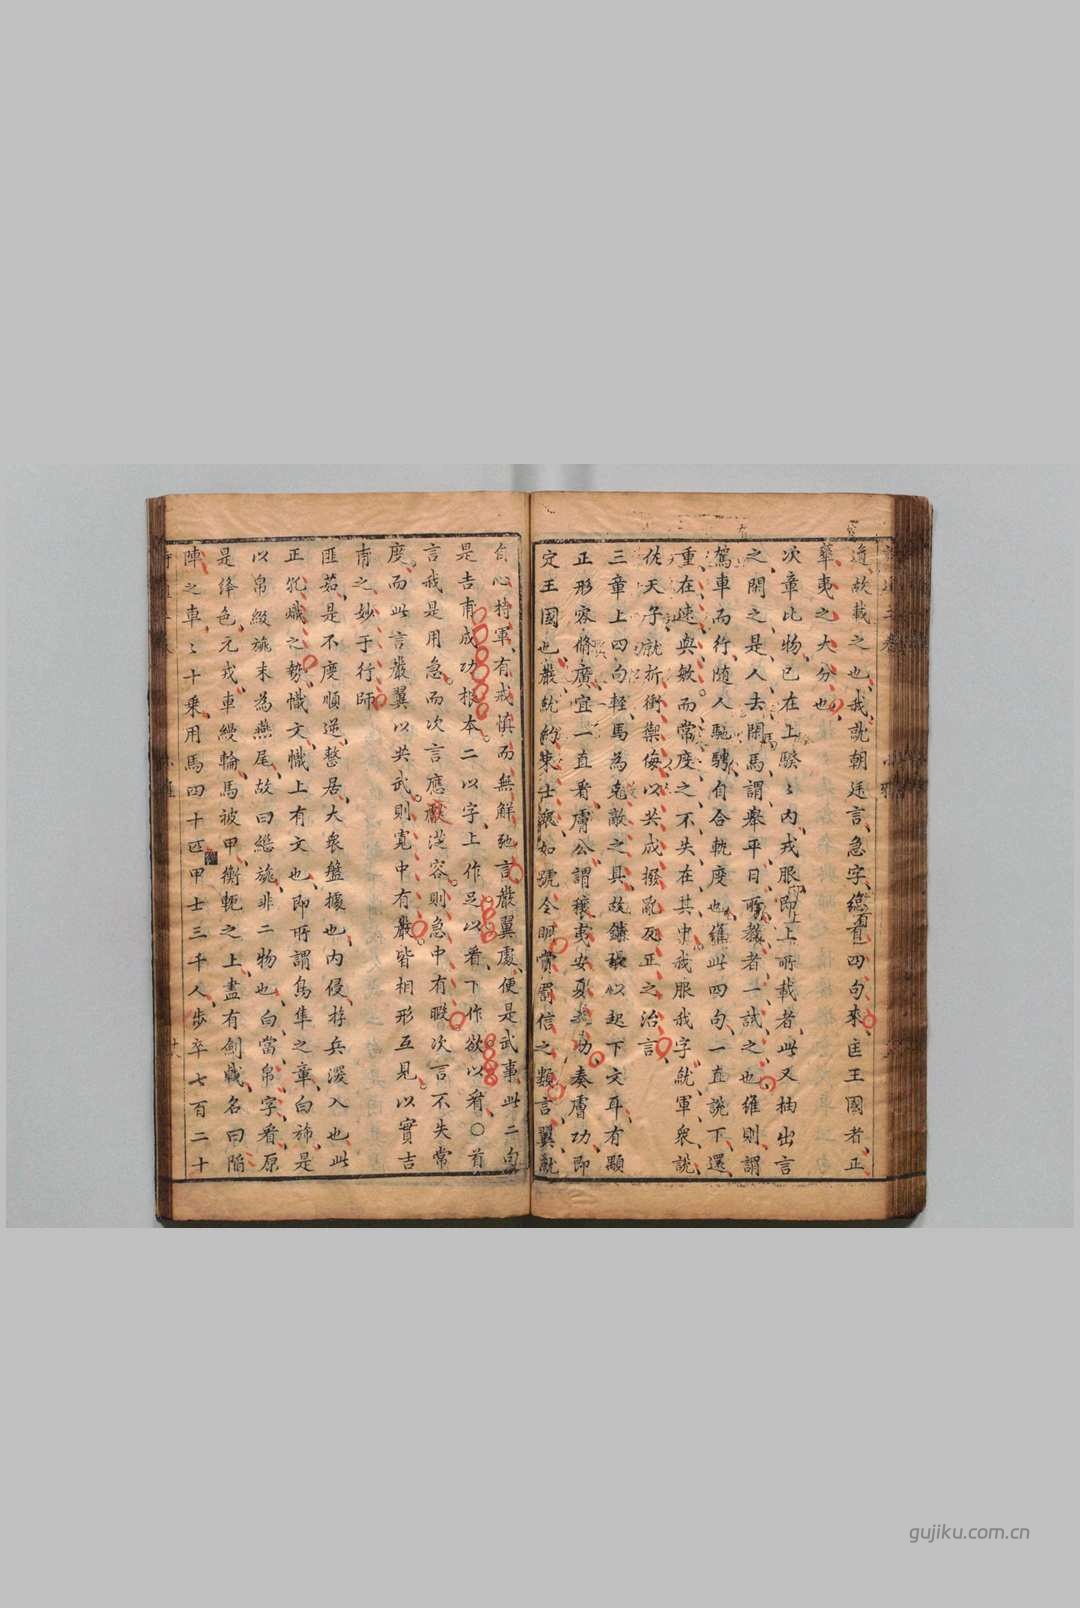 道故載之也我說朝廷言急字總看四句來匡王國者正
華夷之大分也
次章比物已在上騤〻内戎服即上所載者此又抽出言
之閑之是人去閑馬謂舉平日所教者一試之也維則謂
駕車而行随人驅騁自合軌度也維此四句一直說下還
重在速與敏而常度之不失在其中我服我字就軍衆說
佐天子就折衝禦侮以共成撥亂反正之治言
三章上四句輕馬為克敵之具故鋪張以起下文耳有顒
正形容脩廣宜一直看膚公謂穰夷安夏之功奏膚功即
定王國也嚴就約束士衆如號令明賞罰信之類言翼就
自心持軍有戒慎而無觧弛言嚴翼處便是武事此二句
是吉甫成功根本二以字上作足以看下作欲以看○首
言我是用急而次言應敵從容則急中有暇次言不失常
度而此言嚴翼以共武則寛中有嚴皆相形互見以實吉
甫之妙于行師
匪茹是不度順逆整居大衆盤據也内侵㳺兵深入也此
正孔熾之勢幟文幟上有文也即所謂鳥隼之章白斾是
以帛綴旐末為燕尾故曰繼旐非二物也白當帛字看原
是絳色元戎車縵輪馬被甲衡軛之上盡有劍戟名曰陷
陣之車〻十乘用馬四十匹甲士三千人步卒七百二十